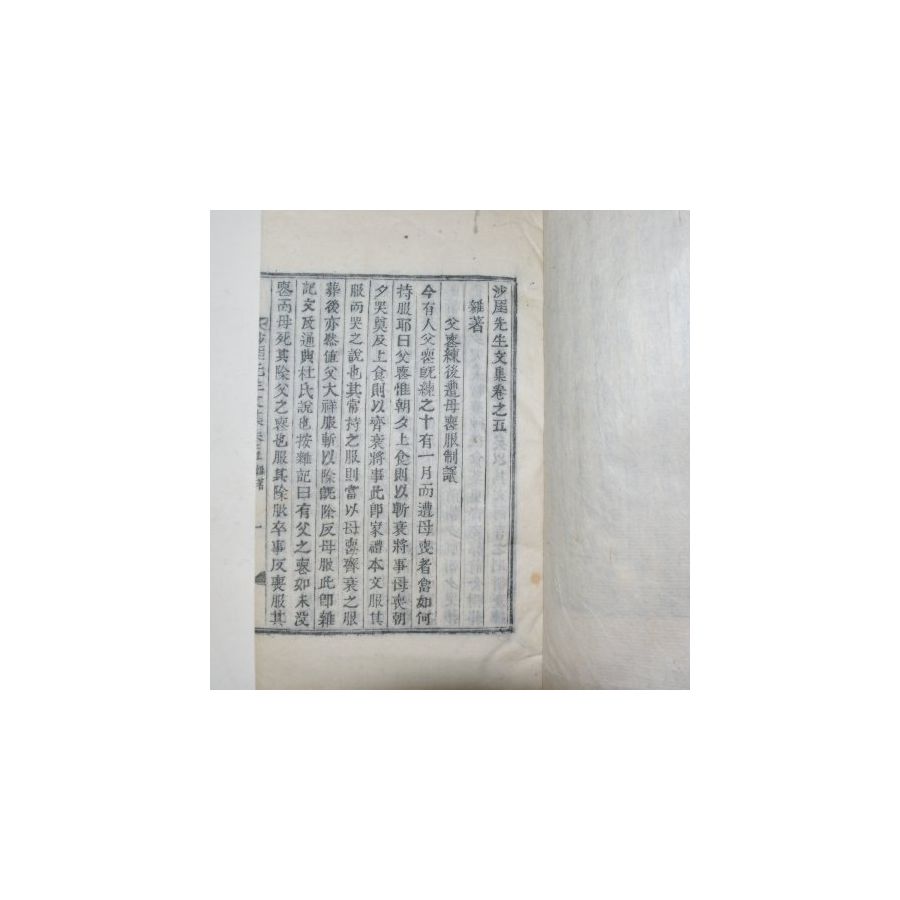 沙厓先生文集卷之五
雜著
父喪練後遭母喪服制議
今有人父喪旣練之十有一月而遭母喪者當如何
持服耶曰父喪惟朝夕上食則以斬衰將事母喪朝
夕哭奠及上食則以齊衰將事此卽家禮本文服其
服而哭之說也其常持之服則當以母喪齊衰之服
葬後亦然値父大祥服斬以除旣除反母服此卽雜
記文及通典杜氏說也按雜記曰有父之喪如未沒
喪而母死其除父之喪也服其除服卒事反喪服其